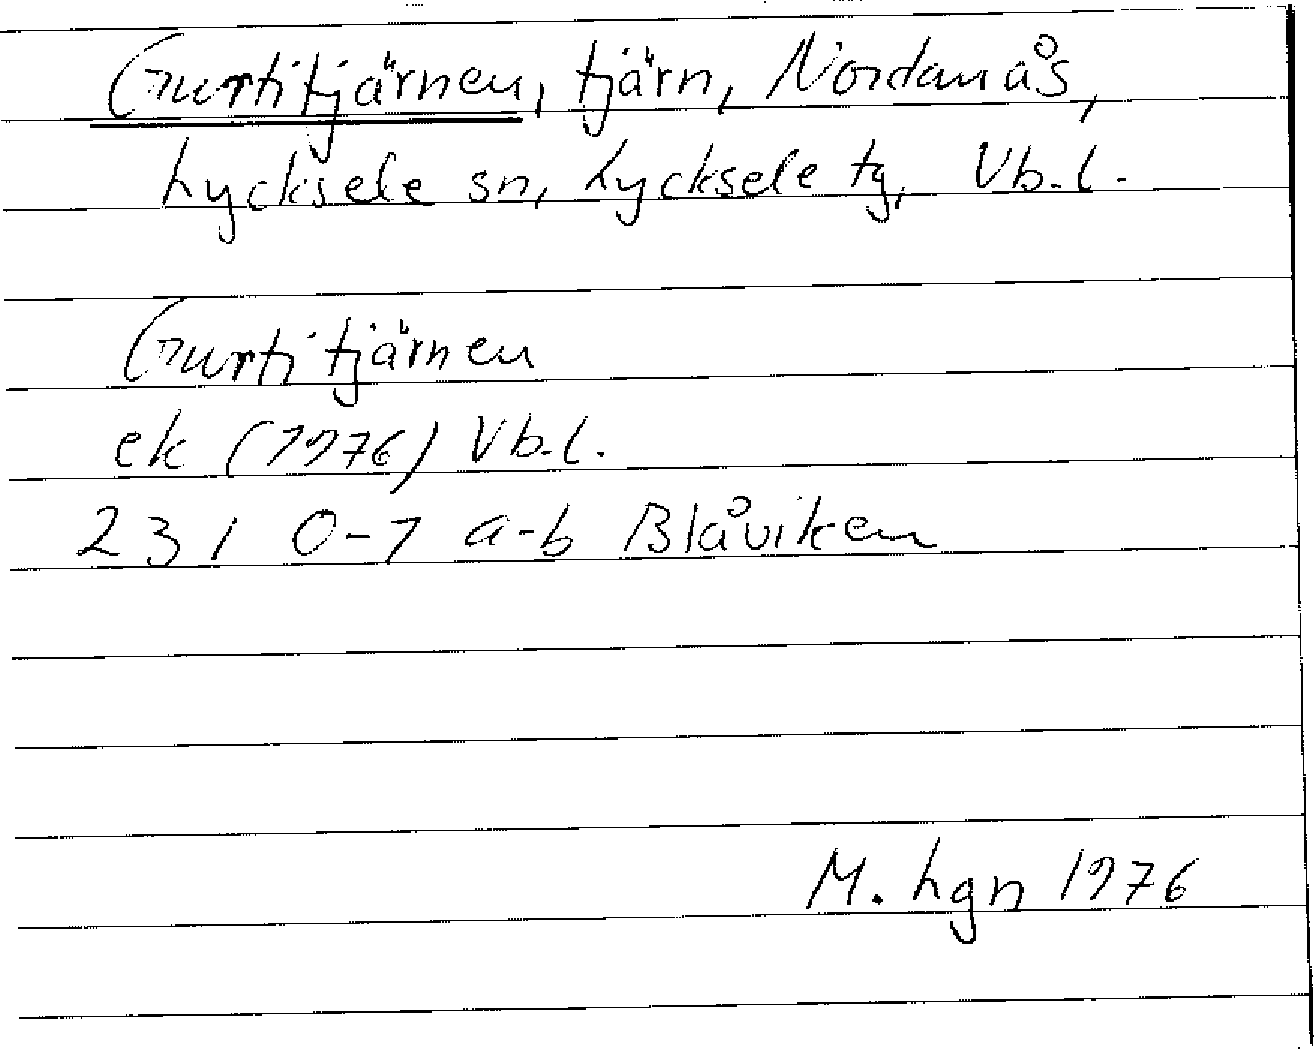 Gurtitjärnen, tjärn, Nordanås,
Lycksele sn, Lycksele tg, Vb. l.
Gurtitjärnen
ek (1976) Vb. l.
23 I 0-1 a-b Blåviken
M. Lgn 1976